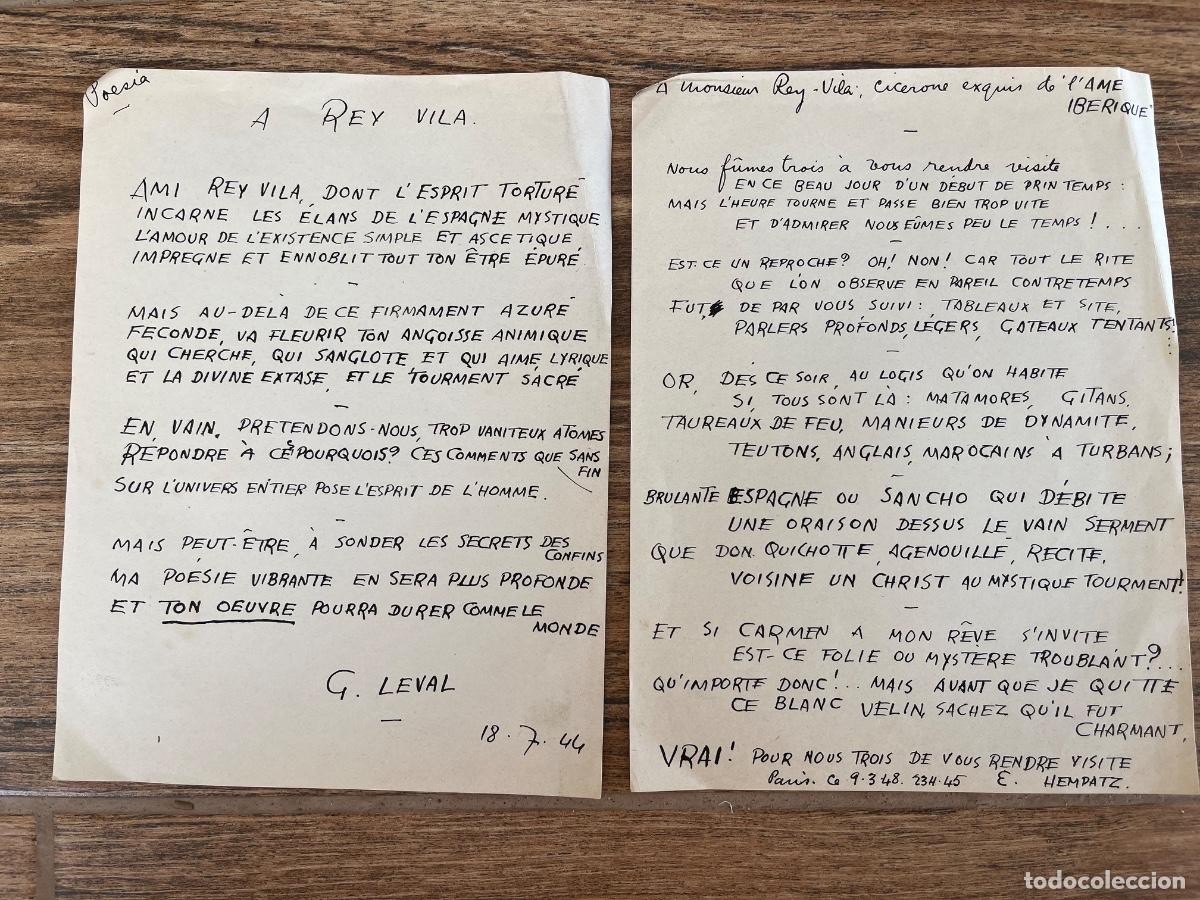 Poesía
A REY VILA.
AMI REY VILA, DONT L'ESPRIT TORTURÉ
INCARNE LES ÉLANS DE L'ESPAGNE MYSTIQUE
L'AMOUR DE L'EXISTENCE SIMPLE ET ASCETIQUE
IMPREGNE ET ENNOBLIT TOUT TON ÊTRE ÉPURÉ.
MAIS AU-DELÀ DE CE FIRMAMENT AZURÉ
FECONDE, VA FLEURIR TON ANGOISSE ANIMIQUE
QUI CHERCHE, QUI SANGLOTE, ET QUI AIME, LYRIQUE
ET LA DIVINE EXTASE, ET LE TOURMENT SACRÉ
EN VAIN, PRETENDONS-NOUS, TROP VANITEUX ATOMES
RÉPONDRE À CES POURQUOIS? CES COMMENTS QUE SANS
FIN
SUR L'UNIVERS ENTIER POSE L'ESPRIT DE L'HOMME.
MAIS PEUT-ÊTRE, À SONDER LES SECRETS DES
CONFINS
MA POÉSIE VIBRANTE EN SERA PLUS PROFONDE
ET TON OEUVRE POURRA DURER COMME LE
MONDE
G. LEVAL
18.7.44
A Monsieur Rey-Vila, cicerone exquis de "L'AME
IBERIQUE"
Nous fûmes trois à vous rendre visite
EN CE BEAU JOUR D'UN DÉBUT DE PRINTEMPS:
MAIS L'HEURE TOURNE ET PASSE BIEN TROP VITE
ET D'ADMIRER NOUS EÛMES PEU LE TEMPS!...
EST-CE UN REPROCHE? OH! NON! CAR TOUT LE RITE
QUE L'ON OBSERVE EN PAREIL CONTRETEMPS
FUT, DE PAR VOUS SUIVI: TABLEAUX ET SITE,
PARLERS PROFONDS, LÉGERS, GATEAUX TENTANTS!...
OR, DÈS CE SOIR, AU LOGIS QU'ON HABITE
SI, TOUS SONT LÀ: MATAMORES, GITANS,
TAUREAUX DE FEU, MANIEURS DE DYNAMITE,
TEUTONS, ANGLAIS, MAROCAINS À TURBANS;
BRULANTE ESPAGNE OU SANCHO QUI DÉBITE
UNE ORAISON DESSUS LE VAIN SERMENT
QUE DON QUICHOTTE, AGENOUILLÉ, RECITE,
VOISINE UN CHRIST AU MYSTIQUE TOURMENT!
ET SI CARMEN A MON RÊVE S'INVITE
EST-CE FOLIE OU MYSTÈRE TROUBLANT?...
QU'IMPORTE DONC!... MAIS AVANT QUE JE QUITTE
CE BLANC VELIN, SACHEZ QU'IL FUT
CHARMANT,
VRAI! POUR NOUS TROIS DE VOUS RENDRE VISITE
Paris. Ce 9.3.48. 23H.45 E. HEMPATZ.
todocoleccion